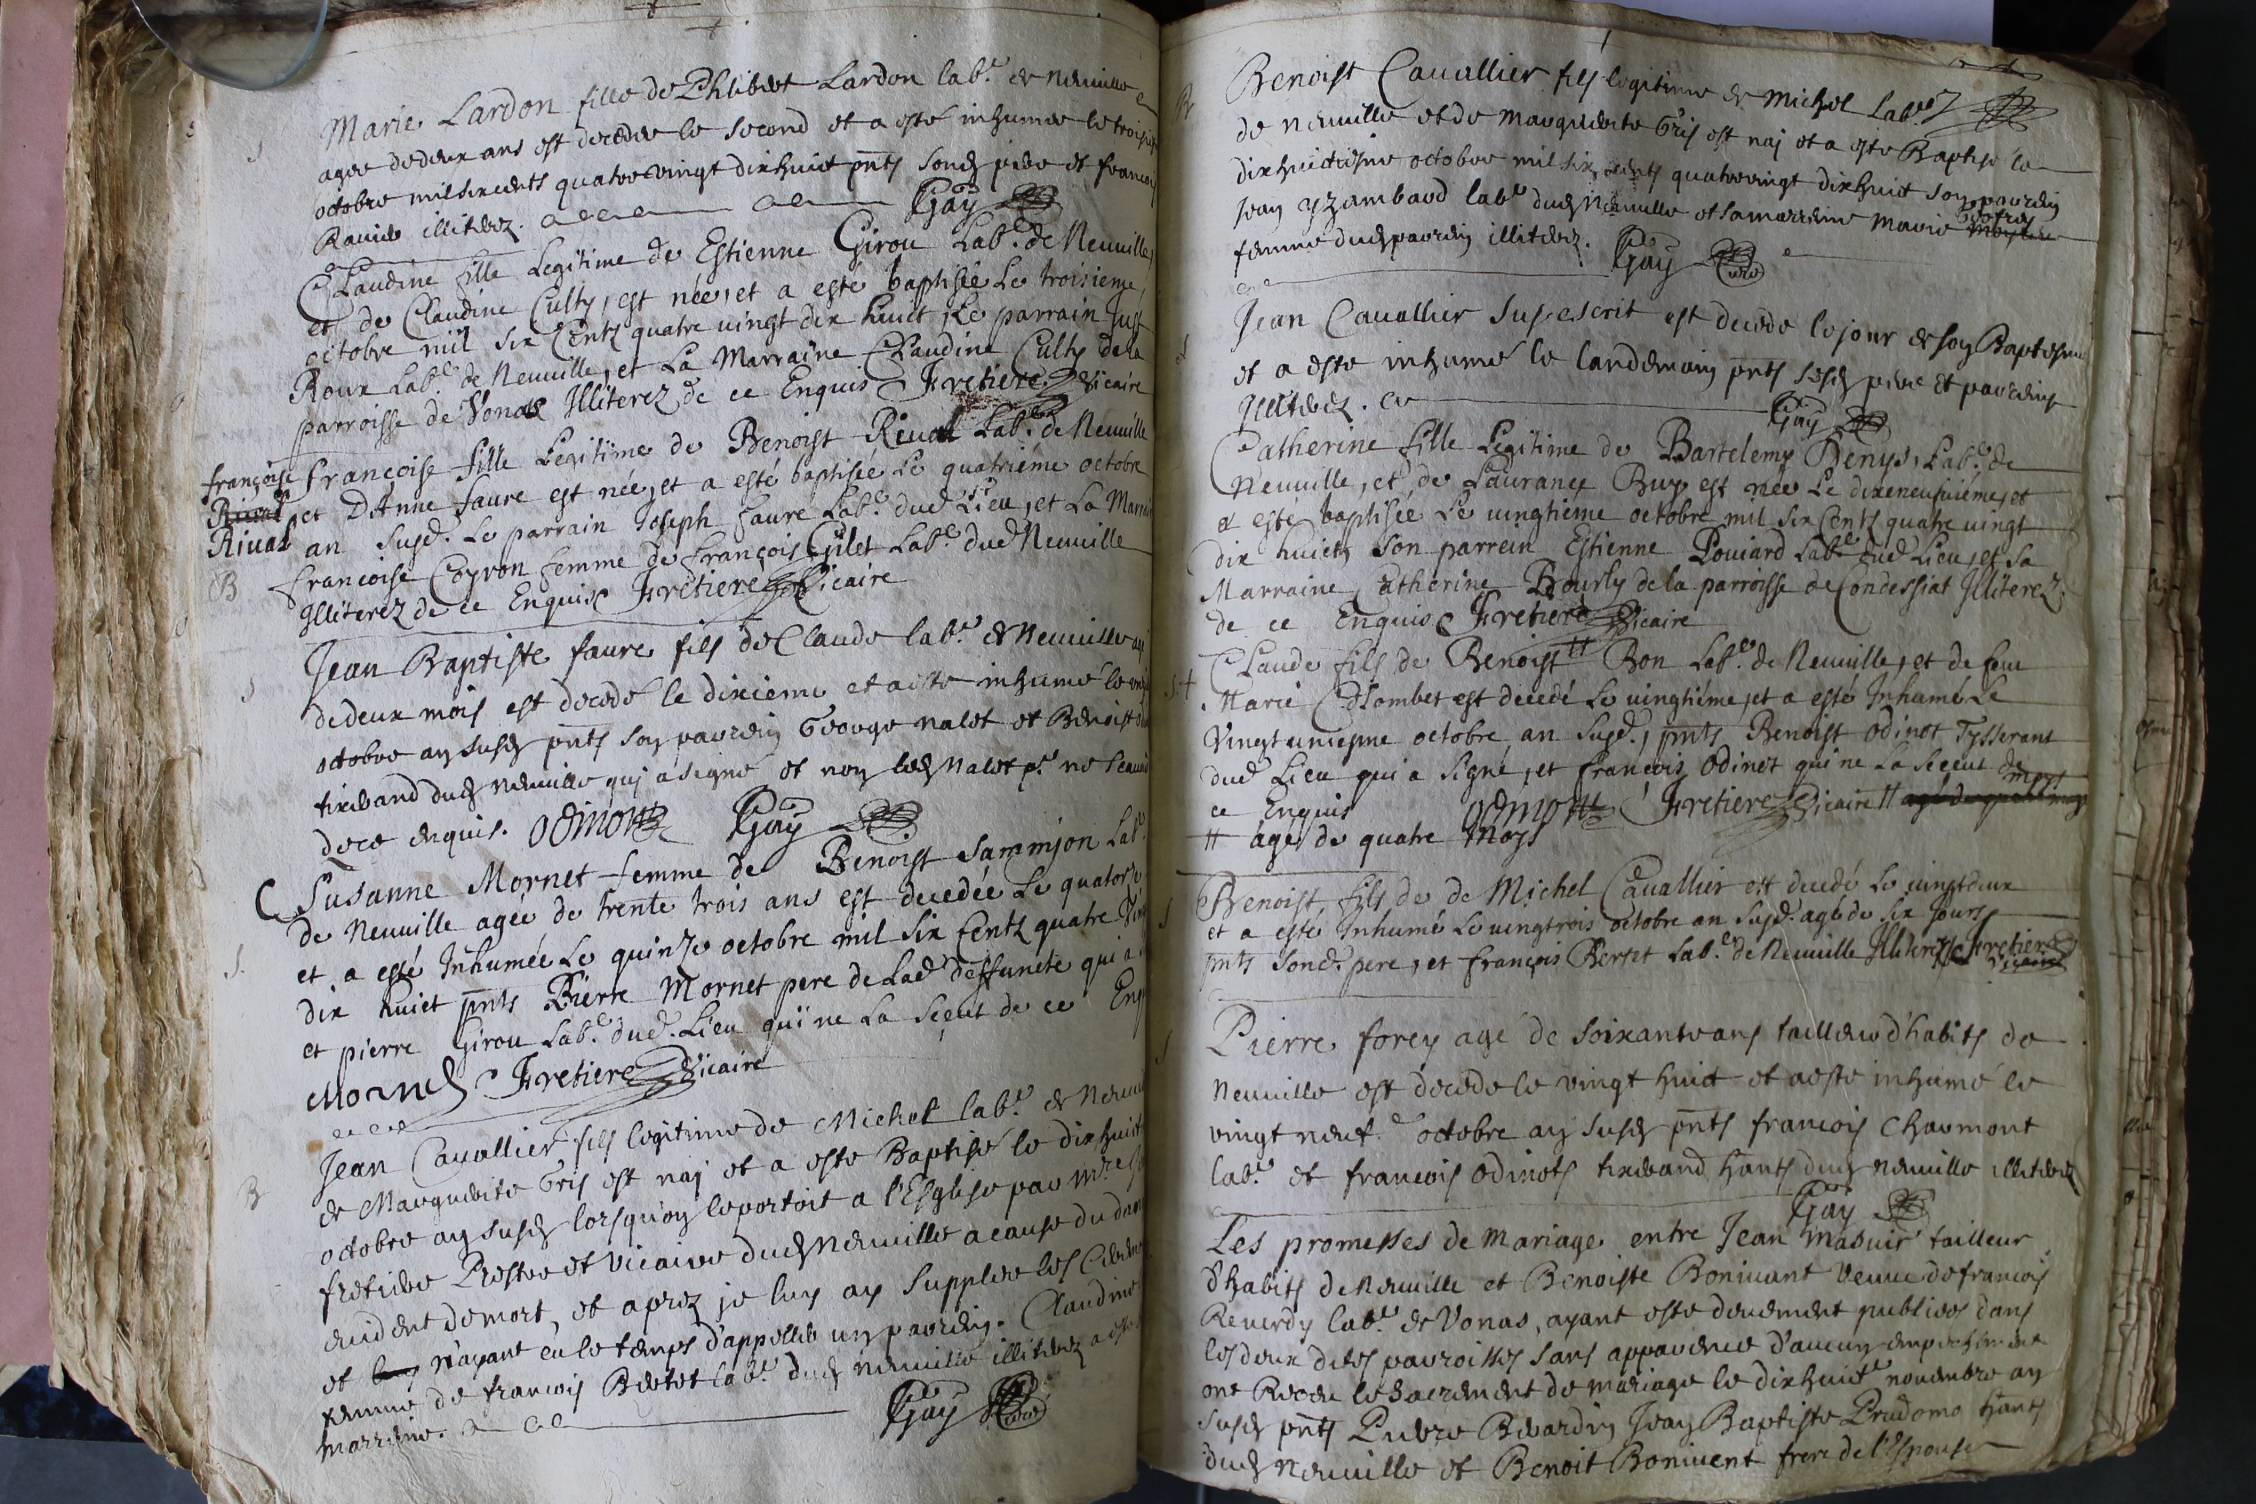 Marie Lardon fille de Phlibert Lardon lab.r de neuville
agee de deux ans est decedee le second et a este inhumee le troisie
octobre mil six cents quatre vingt dix huict pnts sond pere et francois
Ravier illiterez. Gay
Claudine fille Legitime de Estienne Girou Lab.r de Neuville,
et de Claudine Culty, est née, et a esté baptisée Le troisieme,
octobre mil six Cents quatre vingt dix huict, Le parrain Just
Roux Lab.r de Neuville, et La Marraine Claudine Culty de la
parroisse de Vonas Illiterez de ce Enquis Fretiere Vicaire
françoise francoise fille Legitime de Benoist Rival Lab.r de Neuville
Rival et D'Anne faure est née, et a esté baptisée Le quatriéme octobre
Rival an Susd. Le parrain Joseph faure Lab.r dud Lieu, et La Marrai
B francoise Coyron femme de François Gilet Lab.r dud Neuville
Illiterez de ce Enquis Fretiere Vicaire
S Jean Baptiste faure fils de Claude lab.r de Neuville agé
de deux mois est decedé le dixieme et a este inhumé le onzi
octobre an susd pnts son parrein George nalet et Benoist
tixerand dud neuville qui a signé et non led nalet pr ne scavoir
de ce enquis. Odinot Gay
Susanne Mornet femme de Benoist Sammion Lab.r
de Neuville agée de trente trois ans est decedée Le quatorze
S. et a esté Inhumée Le quinze octobre mil six Cents quatre Vin
dix huict pnts Pierre Mornet pere de Lad deffuncte qui a
et pierre Girou Lab.r dud. Lieu qui ne La Sceut de ce Enq
Mornet Fretiere Vicaire
Jean Cavallier fils legitime de Michel lab.r de Neuvill
B de Marguerite Gris est naj et a este Baptisé le dix huict
octobre an susd lorsqu'on le portoit a l'Esglise par mre
fretiere Prestre et Vicaire dud Neuville a cause du dan
evident de mort, et aprez je luy ay supplée les Cerem
et n'ayant eu le temps d'appeller un parrein. Claudine
femme de francois Bertet lab.r dud neuville illiterez a este
marreine. Gay
B Benoist Cavallier fils legitime de Michel lab.r
de neuville et de Marguerite Gris est naj et a este Baptisé le
dixhuictiesme octobre mil six cents quatre vingt dix huict son parrein
Jean Yzambard lab.r dud Neuville et sa marreine Marie
femme dud parrein illiterez. Gay
Jean Cavallier sus escrit est decedé le jour de son Baptesme
et a este inhumé le landemain pnts sesd pere et parreins
Illiterez. Gay
Catherine fille Legitime de Bartelemy Denys, Lab.r de
Neuville, et de Laurance Buy est née Le dixeneufuiéme, et
a esté baptisée Le vingtiéme octobre mil six Cents quatre vingt
dix huict, Son parrein Estienne Pouiard Lab.r dud Lieu, et Sa
Marraine Catherine Bourly de la parroisse de Condessiat Illiterez
de ce Enquis Fretiere Vicaire
Claude fils de Benoist tt Bon Lab.r de Neuville, et de feue
Marie Colombet est decedé Le vingtiéme, et a esté Inhumé Le
Vingt uniesme octobre, an Susd., pnts Benoist Odinot Tysserant
dud Lieu qui a Signé, et francois Odinet qui ne La Sceut de
ce Enquis Odinot Fretiere Vicaire tt agé de quatre moys
tt agé de quatre Moys
S Benoist, fils de de Michel Cavallier est decedé Le vingtdeux
et a esté Inhumé Le vingtrois octobre an Susd. agé de Six Jours
pnts Sond. pere, et françois Bertet Lab.r de Neuville Illiterez Fretiere
Vicaire
S Pierre forey agé de soixante ans tailleur d'habits de
Neuville est decedé le vingt huict et a este inhumé le
vingt neuf.e octobre an susd pnts francois Chaumont
lab.r et francois Odinots tixerand hants dud neuville illiterez
Gay
Les promesses de Mariage entre Jean Masuir tailleur
d'habits de Neuville et Benoiste Bonivant veuve de francois
Reverdy lab.r de Vonas, ayant este deuement publiees dans
les deux dites parroisses sans apparence d'aucun empechement
ont Receu le Sacrement de mariage le dix huict novembre an
susd pnts Pierre Berardin Jean Baptiste Prudomo hants
dud Neuville et Benoit Bonivent frere de l'espouse